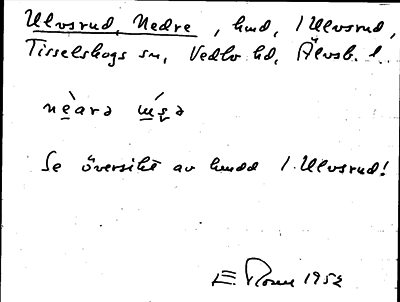 Ulvsrud, Nedre, hmd, 1 Ulvsrud,
Tisselskogs sn, Vedbo hd, Älvsb. l.
nèara
Se översikt av hmdd 1. Ulvsrud!
E. 1952